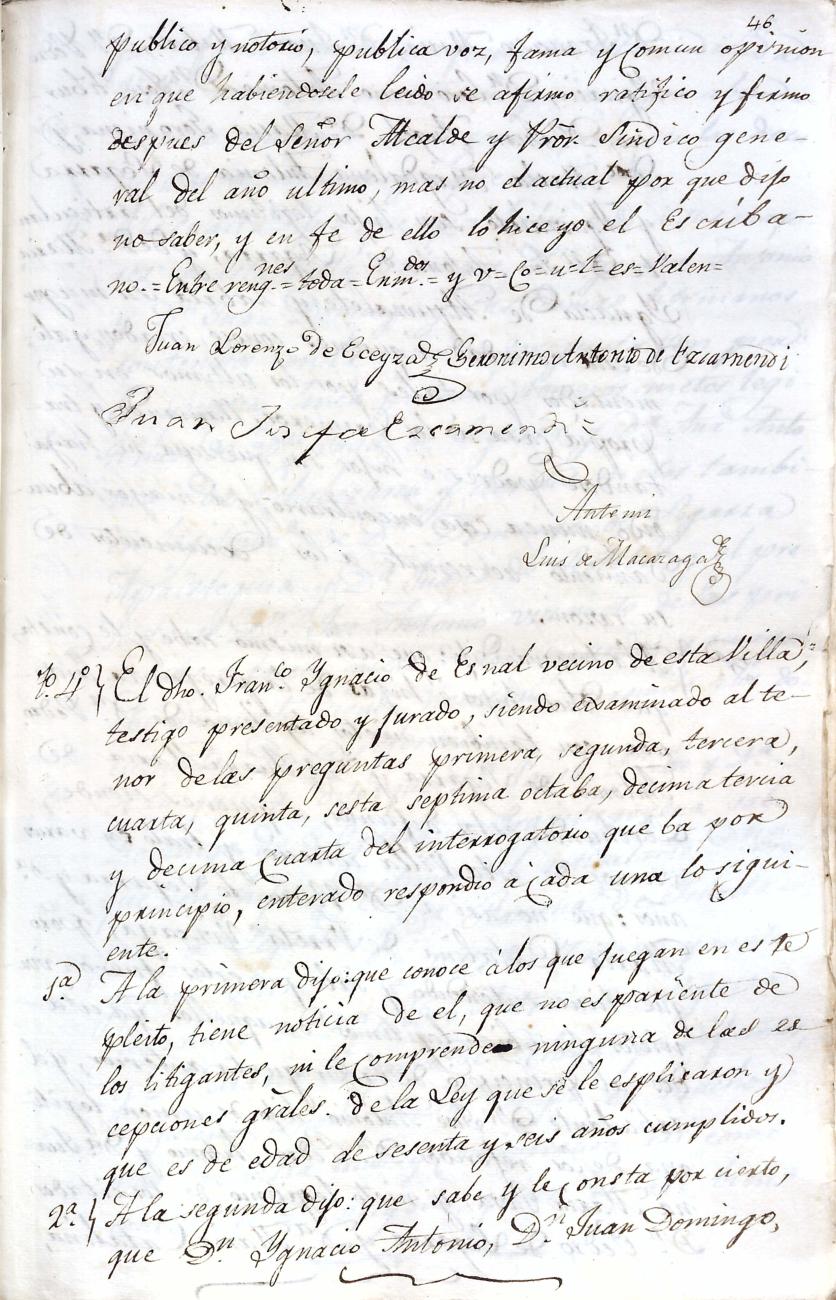 46
publico y notorio, publica voz, fama y comun opinion
en que habiendosele leido se afirmo ratifico y firmo
despues del Señor Alcalde y Prõr. Sindico gene-
ral del año ultimo, mas no el actual por que dijo
no saber, y en fe de ello lo hice yo el Escriba-
no.=Entre reng.nes=toda=Enm.dos= y v=Co=u=l=es=Valen=
Juan Lorenzo de Eceyza Geronimo Antonio de Ezcamendi
Juan Josef de Ezcamendi
Antemi
Luis de Macazaga
to. 4º El dho. Franco. Ygnacio de Esnal vecino de esta Villa,
testigo presentado y jurado, siendo examinado al te-
nor de las preguntas primera, segunda, tercera,
cuarta, quinta, sesta septima octaba, decima tercia
y decima cuarta del interrogatorio que ba por
principio, enterado respondio à cada una lo sigui-
ente.
1ª A la primera dijo: que conoce à los que juegan en este
pleito, tiene noticia de el, que no es pariente de
los litigantes, ni le comprende ninguna de las es
cepciones grãles. de la Ley que se le esplicaron y
que es de edad de sesenta y seis años cumplidos.
2ª A la segunda dijo: que sabe y le consta por cierto,
que Dn Ygnacio Antonio, Dn Juan Domingo,